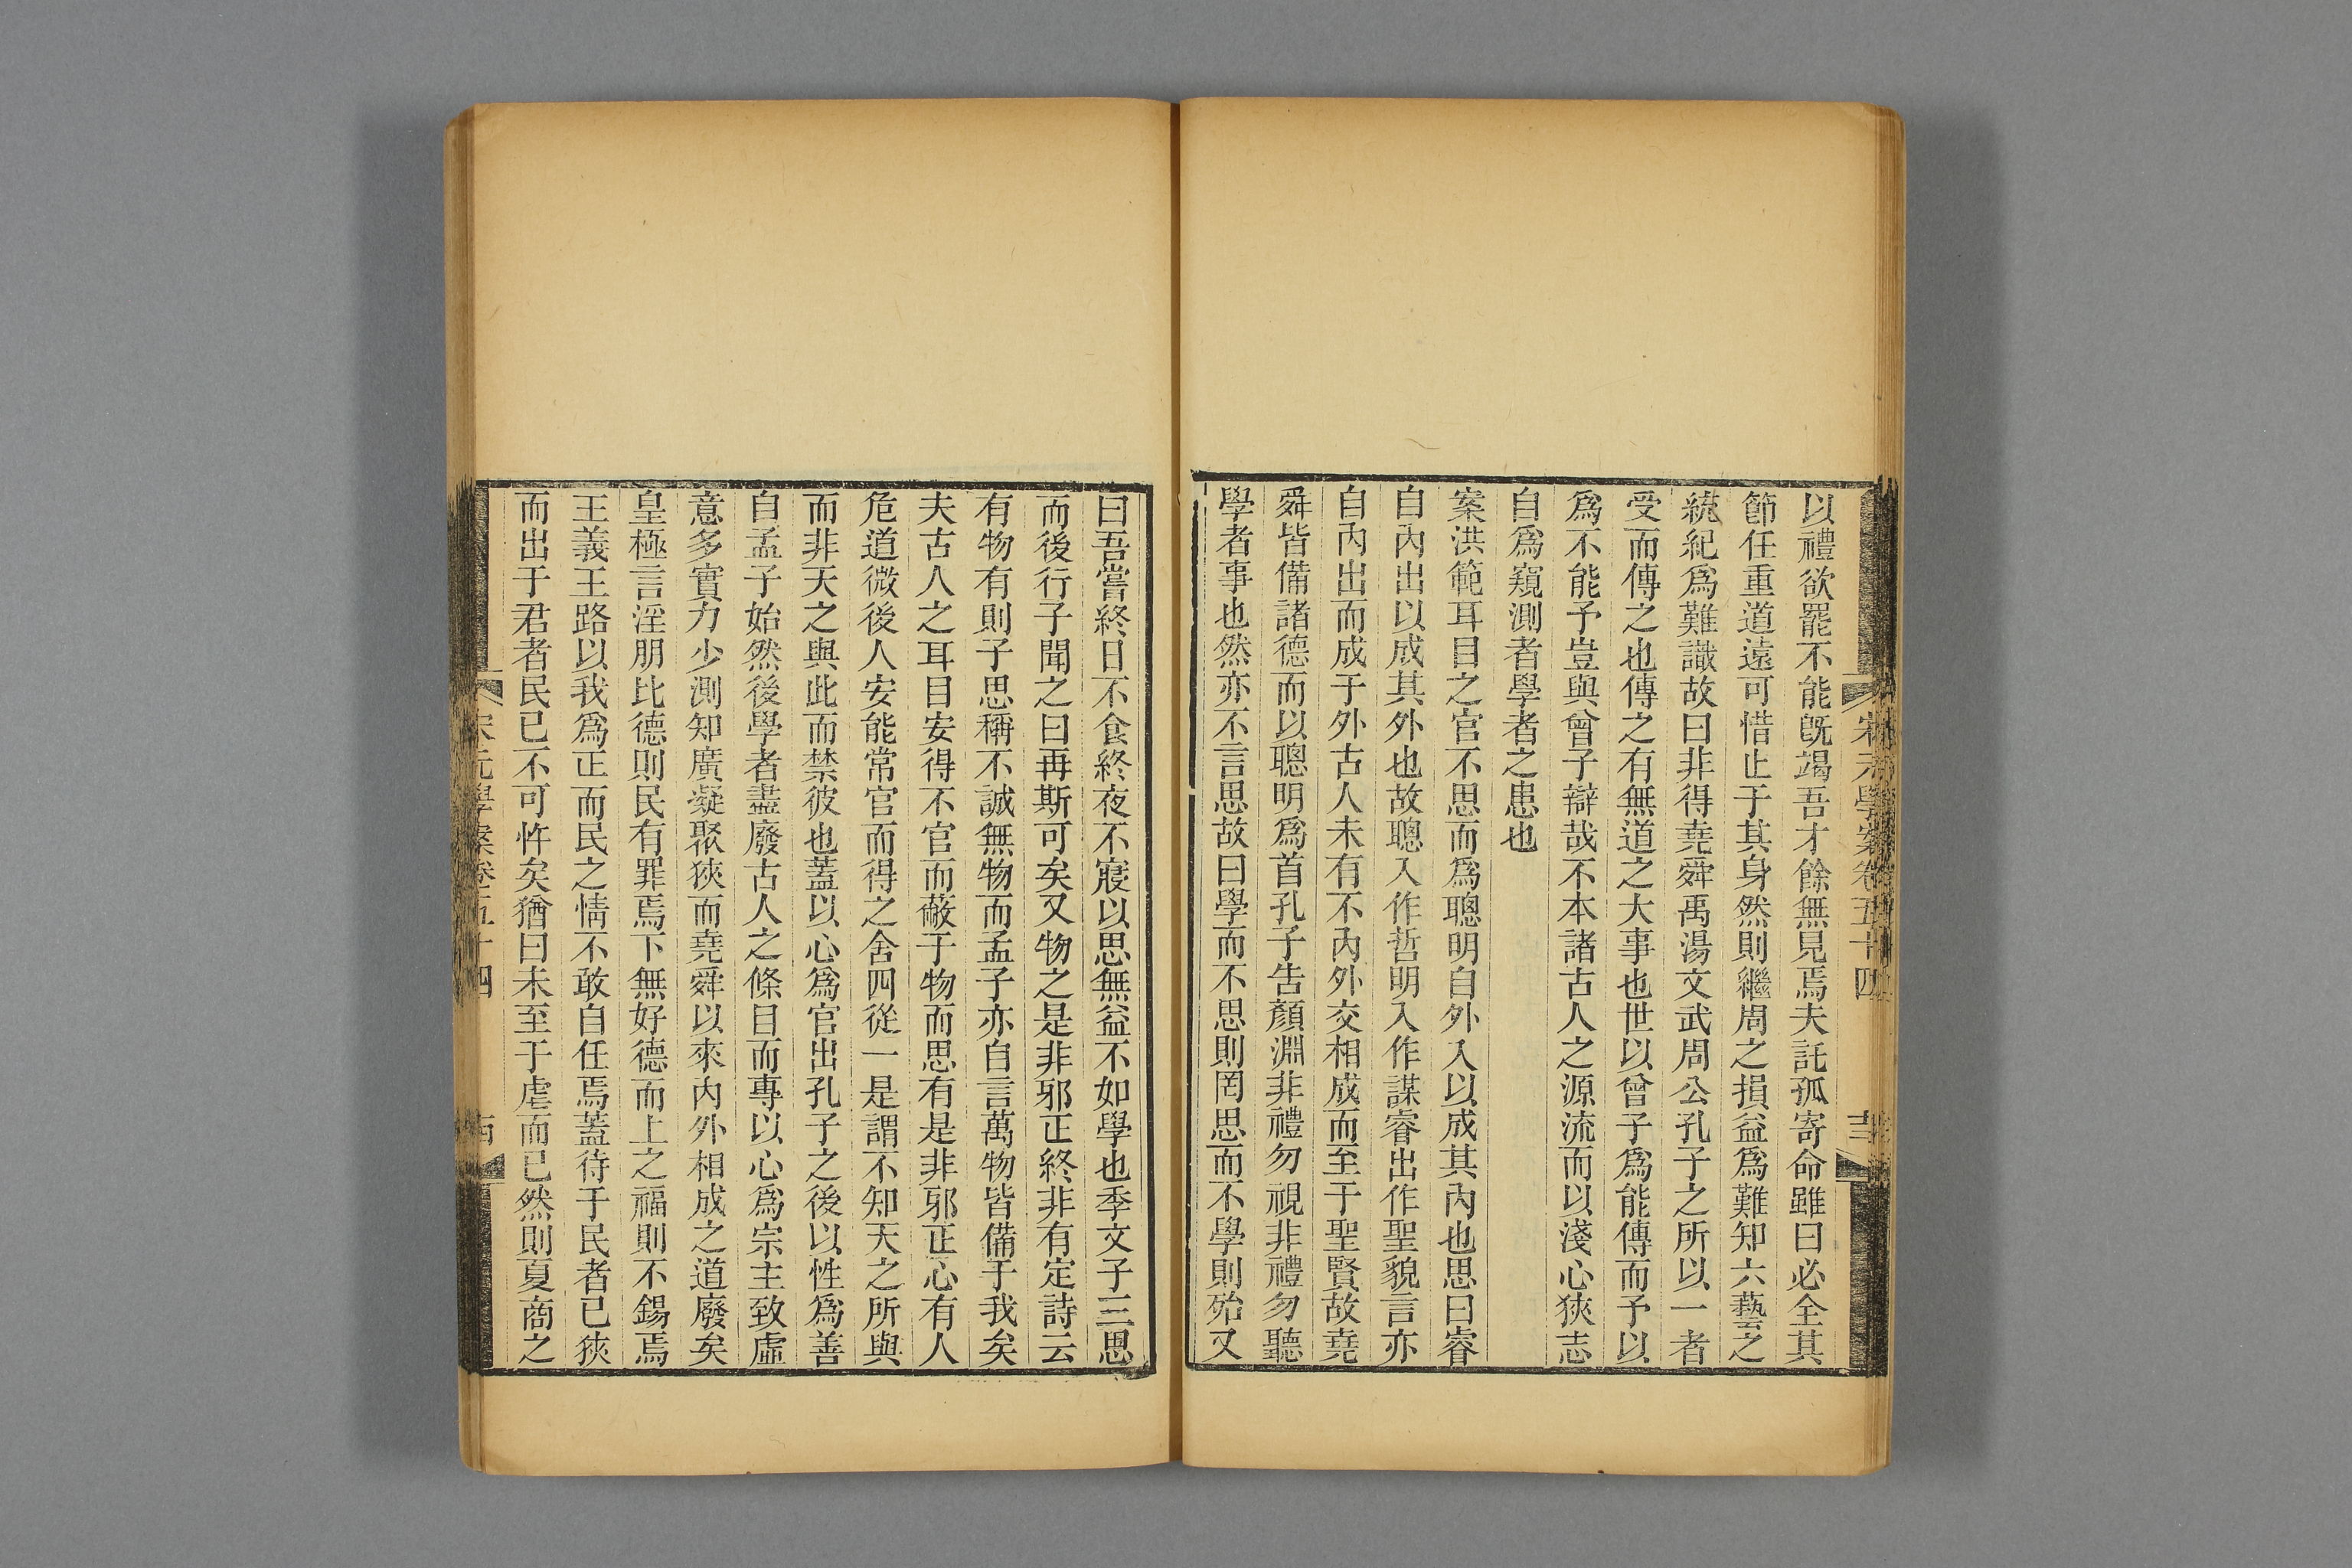 宋元學案卷五十四
以禮欲罷不能旣竭吾才餘無見焉夫託孤寄命雖曰必全其
節任重道遠可惜止于其身然則繼周之損益爲難知六藝之
統紀爲難識故曰非得堯舜禹湯文武周公孔子之所以一者
受而傳之也傳之有無道之大事也世以曾子爲能傳而予以
爲不能予豈與曾子辯哉不本諸古人之源流而以淺心狹志
自爲窺測者學者之患也
案洪範耳目之官不思而爲聰明自外入以成其內也思曰睿
自內出以成其外也故聰入作哲明入作謀睿出作聖貌言亦
自內出而成于外古人未有不內外交相成而至于聖賢故堯
舜皆備諸德而以聰明爲首孔子告顏淵非禮勿視非禮勿聽
學者事也然亦不言思故曰學而不思則罔思而不學則殆又
曰吾嘗終日不食終夜不寢以思無益不如學也季文子三思
而後行子聞之曰再斯可矣又物之是非邪正終非有定詩云
有物有則子思稱不誠無物而孟子亦自言萬物皆備于我矣
夫古人之耳目安得不官而蔽于物而思有是非邪正心有人
危道微後人安能常官而得之舍四從一是謂不知天之所與
而非天之與此而禁彼也蓋以心爲官出孔子之後以性爲善
自孟子始然後學者盡廢古人之條目而專以心爲宗主致虛
意多實力少測知廣凝聚狹而堯舜以來內外相成之道廢矣
皇極言淫朋比德則民有罪焉下無好德而上之福則不錫焉
王義王路以我爲正而民之情不敢自任焉蓋待于民者已狹
而出于君者民已不可忤矣猶曰未至于虐而已然則夏商之
宋元學案卷五十四